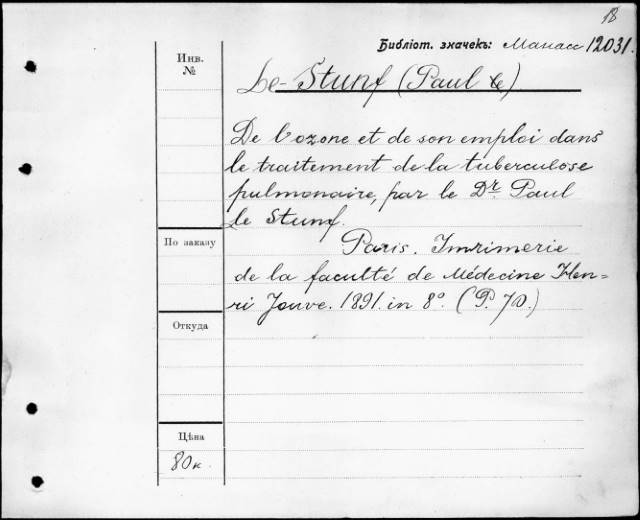 18
Библіот. значекъ: Манасс 12031.
Инв.
№
Le-Stunf (Paul le)
De l'ozone et de son emploi dans
le traitement de la tuberculose
pulmonaire, par le Dr. Paul
le Stunf.
По заказу
Paris. Imrimerie
de la faculté de Médecine Hen=
ri Jouve. 1891. in 8º. (P. 70.)
Откуда
Цѣна
80 к.